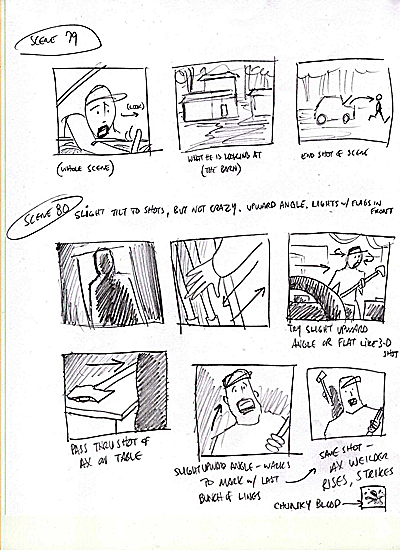 SCENE 79
(LOOK)
(WHOLE SCENE)
WHAT HE IS LOOKING AT
(THE BARN)
END SHOT OF SCENE
SCENE 80
SLIGHT TILT TO SHOTS, BUT NOT CRAZY. UPWARD ANGLE. LIGHTS W/ FLAGS IN
FRONT
TRY SLIGHT UPWARD
ANGLE OR FLAT LIKE 3-D
SHOT
PASS THRU SHOT OF
AX ON TABLE
SLIGHT UPWARD ANGLE - WALKS
TO MARK W/ LAST
BUNCH OF LINES
SAME SHOT -
AX WEILDER
RISES, STRIKES
CHUNKY BLOOD